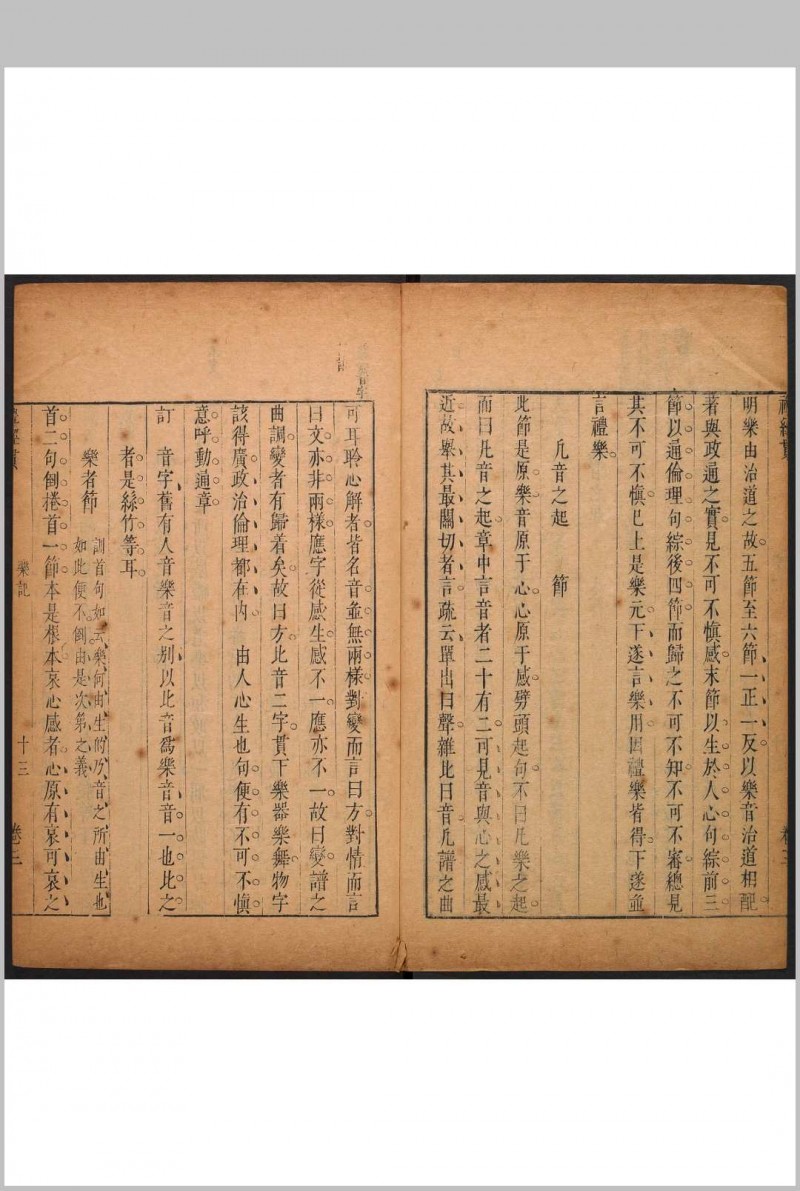 明樂由治道之故五節至六節一正一反以樂音治道相配
著與政通之實見不可不慎感末節以生於人心句綜前三
節以通倫理句綜後四節而歸之不可不知不可不審總見
其不可不慎巳上是樂元下遂言樂用因禮樂皆得下遂並
言禮樂
凡音之起 節
此節是原樂音原于心心原于感劈頭起句不曰凡樂之起
而曰凡音之起章中言音者二十有二可見音與心之感最
近故舉其最關切者言疏云單出曰聲雜比曰音凡譜之曲
可耳聆心解者皆名音並無兩樣對變而言曰方對情而言
曰文亦非兩樣應字從感生感不一應亦不一故曰變譜之
曲調變者有歸着矣故曰方此音二字貫下樂器樂舞物字
該得廣政治倫理都在內 由人心生也句便有不可不慎
意呼動通章
訂 音字舊有人音樂音之别以此音爲樂音音一也比之
者是絲竹等耳
樂者節 訓首句如云樂何由生的乃音之所由生也
如此便不倒由是次第之義
首二句倒捲首一節本是根本哀心感者心原有哀可哀之
樂記 十三 卷三